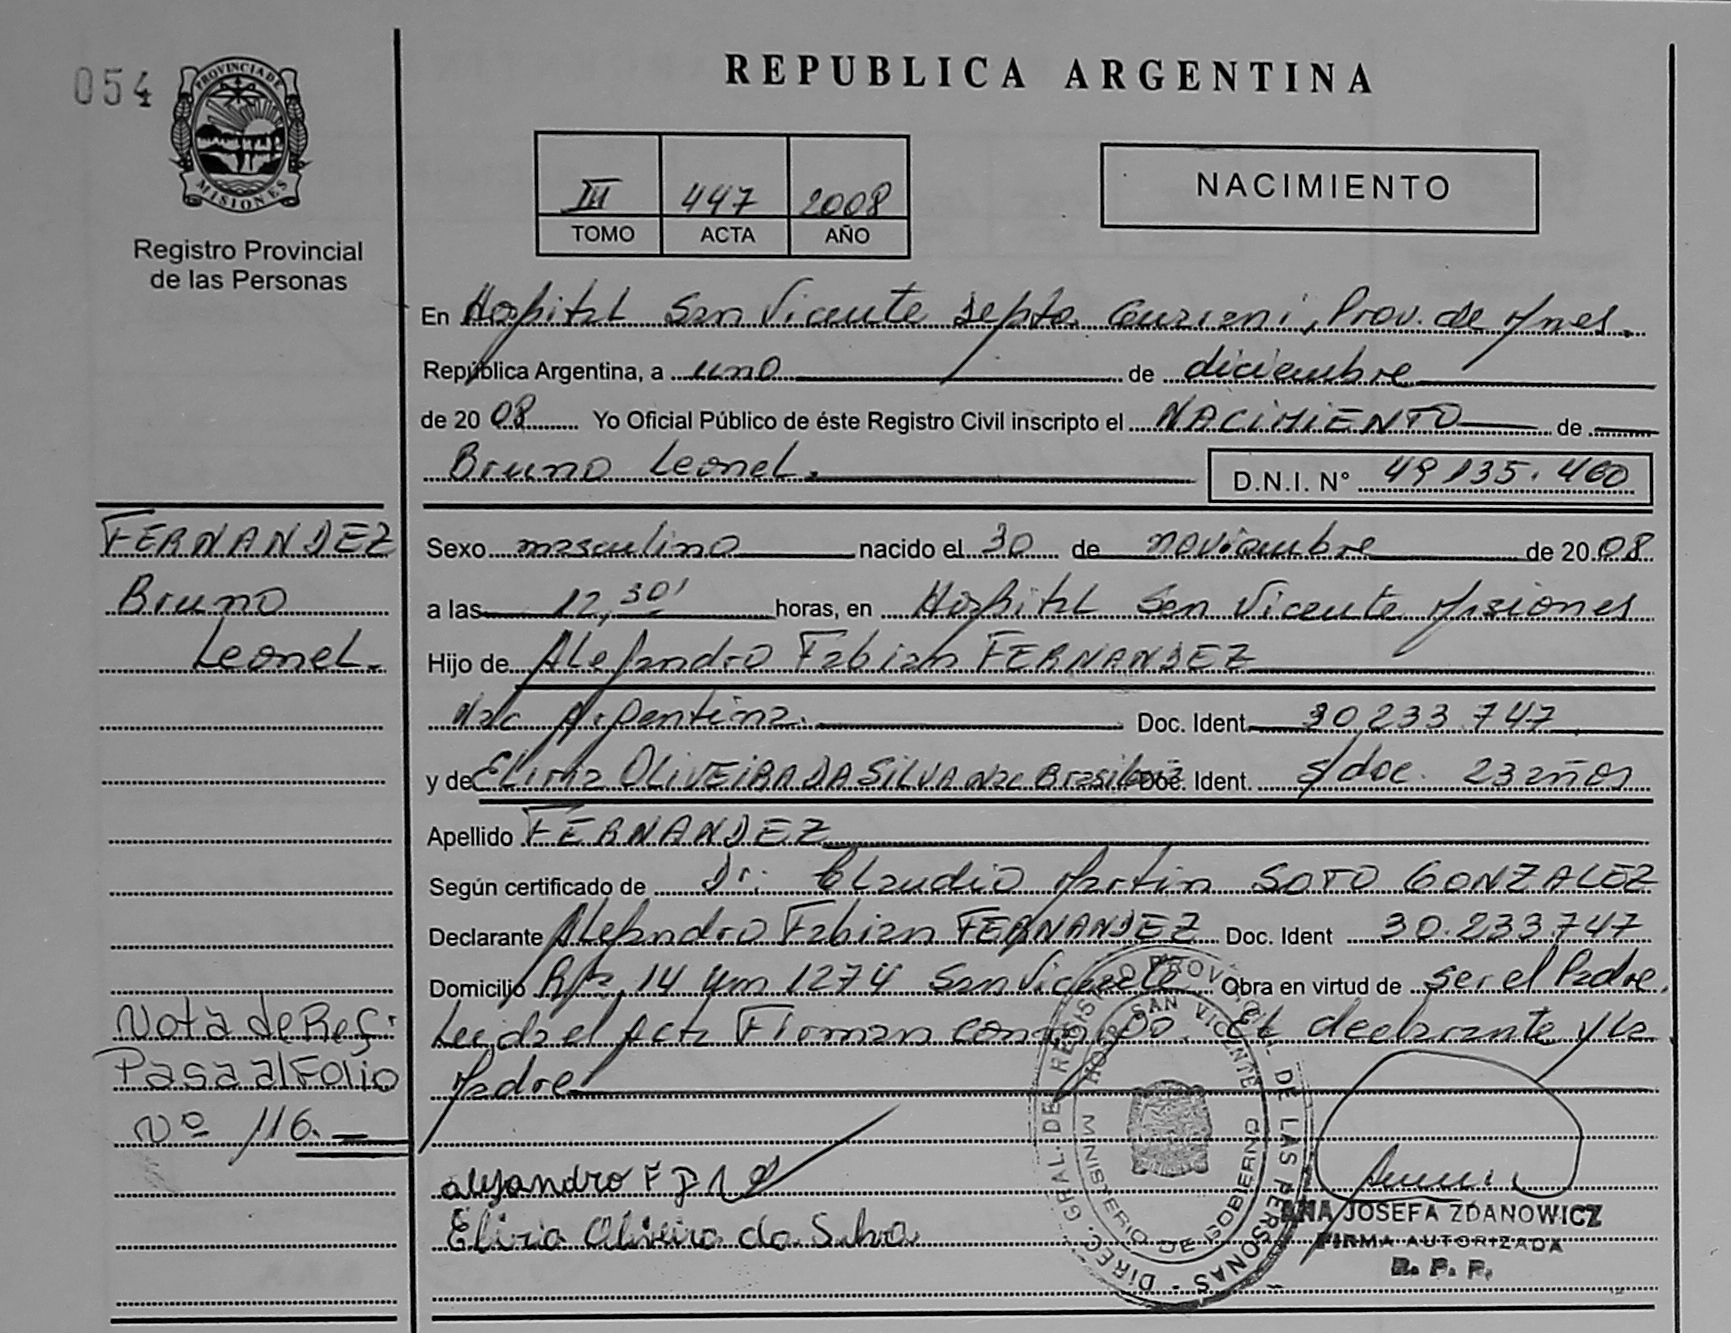 054
PROVINCIA DE
MISIONES
Registro Provincial
de las Personas
REPUBLICA ARGENTINA
III 447 2008
TOMO ACTA AÑO
NACIMIENTO
En Hospital San Vicente Depto. Guarani, Prov. de Mnes.
República Argentina, a uno de diciembre
de 2008 Yo Oficial Público de éste Registro Civil inscripto el NACIMIENTO de
Bruno Leonel. D.N.I. N° 49.135.460
FERNANDEZ
Bruno
Leonel.
Sexo masculino nacido el 30 de noviembre de 2008
a las 12,30' horas, en Hospital San Vicente Misiones
Hijo de Alejandro Fabian FERNANDEZ
Nac Argentina. Doc. Ident. 30.233.747
y de OLIVEIRA DA SILVA Nac Brasileña Doc. Ident. s/doc. 23 años
Apellido FERNANDEZ
Según certificado de Dr. Claudio Martin SOTO GONZALEZ
Declarante Alejandro Fabian FERNANDEZ Doc. Ident 30.233.747
Domicilio Rta 14 Km 1274 San Vicente Obra en virtud de ser el Padre.
Leida el Acta Firman El declarante y la
Madre
Nota de Ref:
Pasa al Folio
Nº 116.
alejandro
Oliveira da Silva
DIREC. GRAL. DE REGISTRO PROVINCIAL DE LAS PERSONAS
HOSP. SAN VICENTE
MINISTERIO DE GOBIERNO
ANA JOSEFA ZDANOWICZ
FIRMA AUTORIZADA
R. P. P.